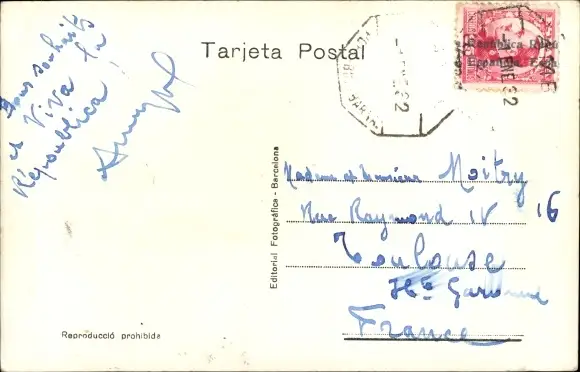 Tarjeta Postal
Bons souhaits
et Viva la
République!
Madame et Monsieur Moitry
Rue Raymond IV 16
Toulouse
Hte Garonne
France
Editorial Fotográfica - Barcelona
Reproducció prohibida
República
Española